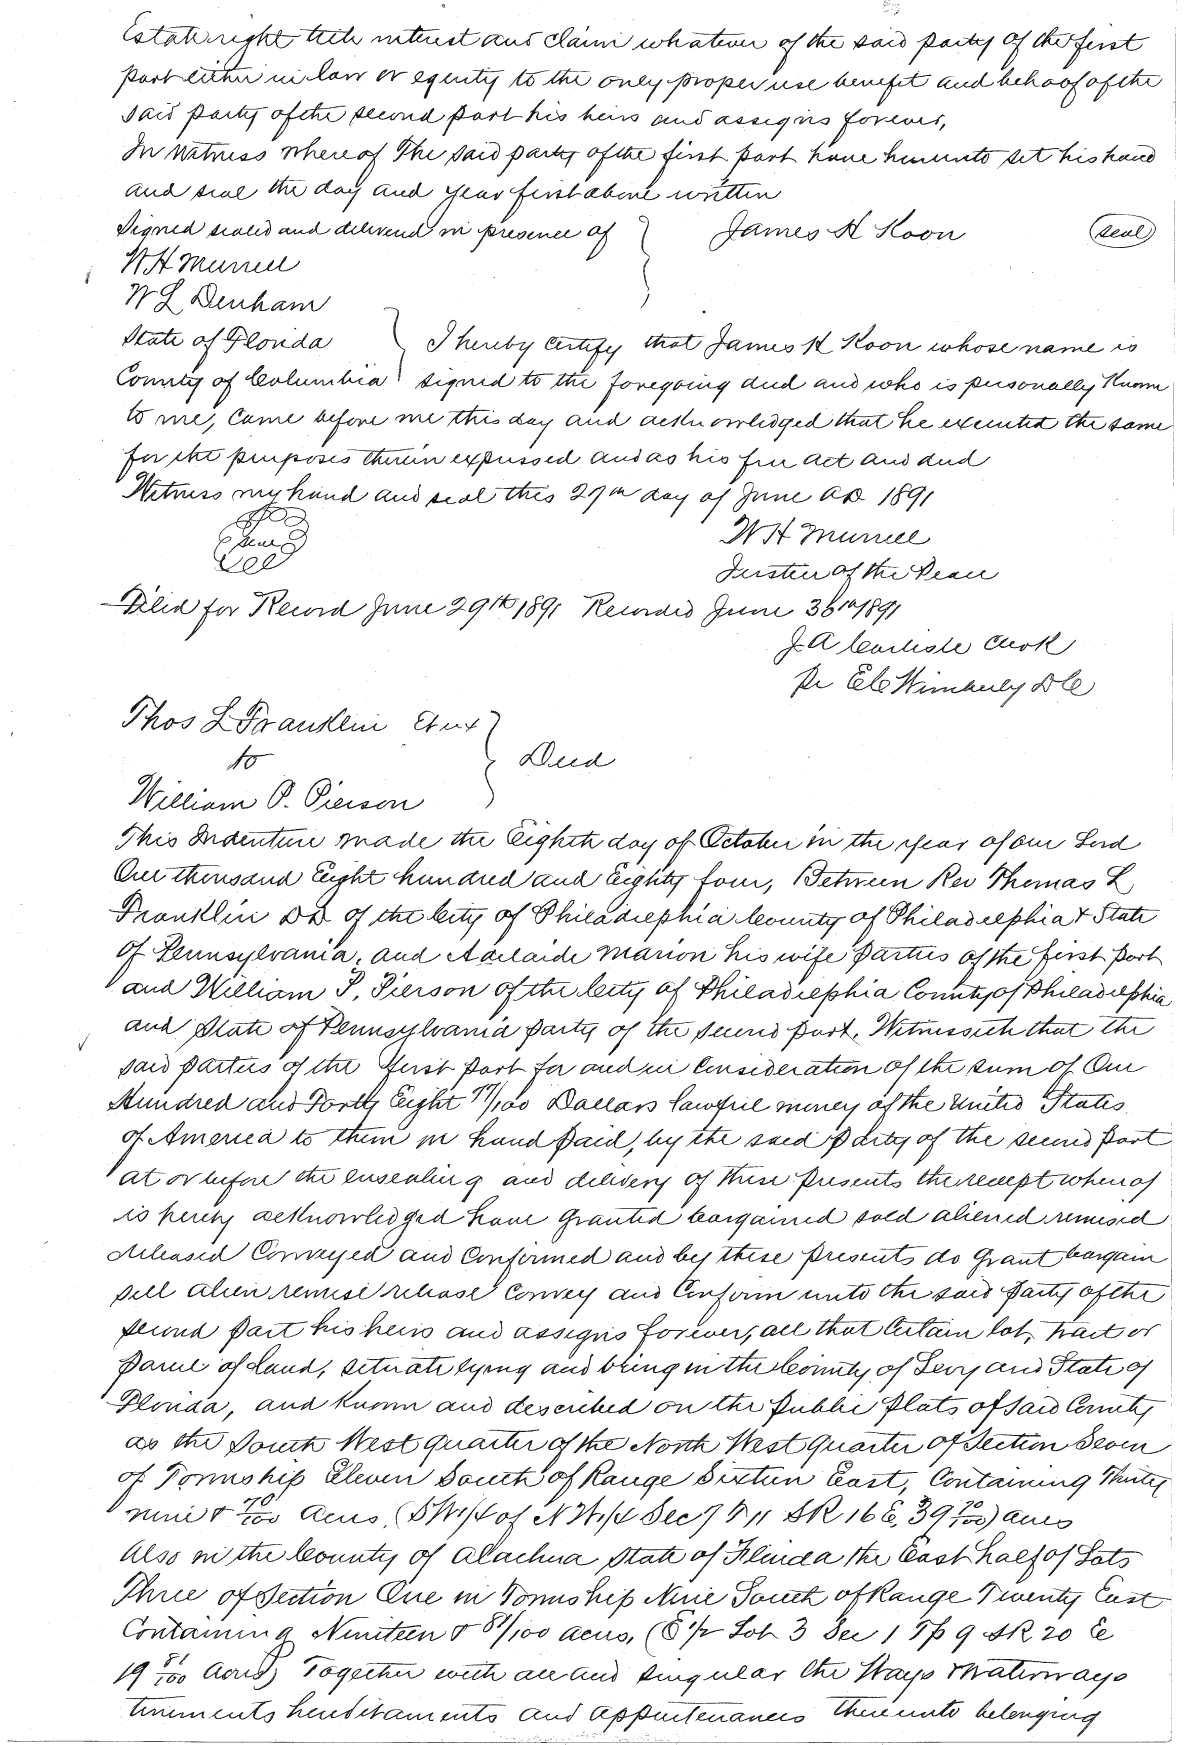 Estate right title interest and claim whatever of the said party of the first
part either in law or equity to the only proper use benefit and behoof of the
said party of the second part his heirs and assigns forever,
In witness whereof The said party of the first part have hereunto set his hand
and seal the day and year first above written
Signed sealed and delivered in presence of James K Koon seal
W H Murrell
W L Denham
State of Florida I hereby certify that James K Koon whose name is
County of Columbia signed to the foregoing deed and who is personally Known
to me, came before me this day and acknowledged that he executed the same
for the purposes therein expressed and as his free act and deed
Witness my hand and seal this 27th day of June AD 1891
W H Murrell
Justice of the Peace
Filed for Record June 29th 1891 Recorded June 30th 1891
J A Carlisle Clerk
Pr Wimberly D C
Thos L Franklin Et ux
to Deed
William P. Pierson
This Indenture made the Eighth day of October in the year of our Lord
One thousand Eight hundred and Eighty four, Between Rev Thomas L
Franklin DD of the City of Philadelphia County of Philadelphia & State
of Pennsylvania, and Adelaide Marion his wife parties of the first part
and William P. Pierson of the City of Philadelphia County of Philadelphia
and State of Pennsylvania party of the second part, Witnesseth that the
said parties of the first part for and in consideration of the sum of One
Hundred and Forty Eight /100 Dollars lawful money of the United States
of America to them in hand paid, by the said party of the second part
at or before the ensealing and delivery of these presents the receipt whereof
is hereby acknowledged have granted bargained sold aliened remised
released Conveyed and Confirmed and by these presents do Grant bargain
sell alien remise release Convey and Confirm unto the said party of the
second part his heirs and assigns forever, all that Certain lot, tract or
parcel of land, situate lying and being in the County of Levy and State of
Florida, and known and described on the Public Plats of said County
as the South West quarter of the North West quarter of Section Seven
of Township Eleven South of Range Sixteen East, Containing Thirty
nine & 70/100 acres, (SW1/4 of NW1/4 Sec 7 T 11 SR 16 E, 39 70/100) acres
Also in the County of Alachua State of Florida the East half of Lots
Three of Section One in Township Nine South of Range Twenty East
Containing Nineteen & 81/100 acres, (E 1/2 Lot 3 Sec 1 Tp 9 SR 20 E
19 81/100 Acres) Together with all and singular the Ways & Waterways
tenements hereditaments and appurtenances thereunto belonging